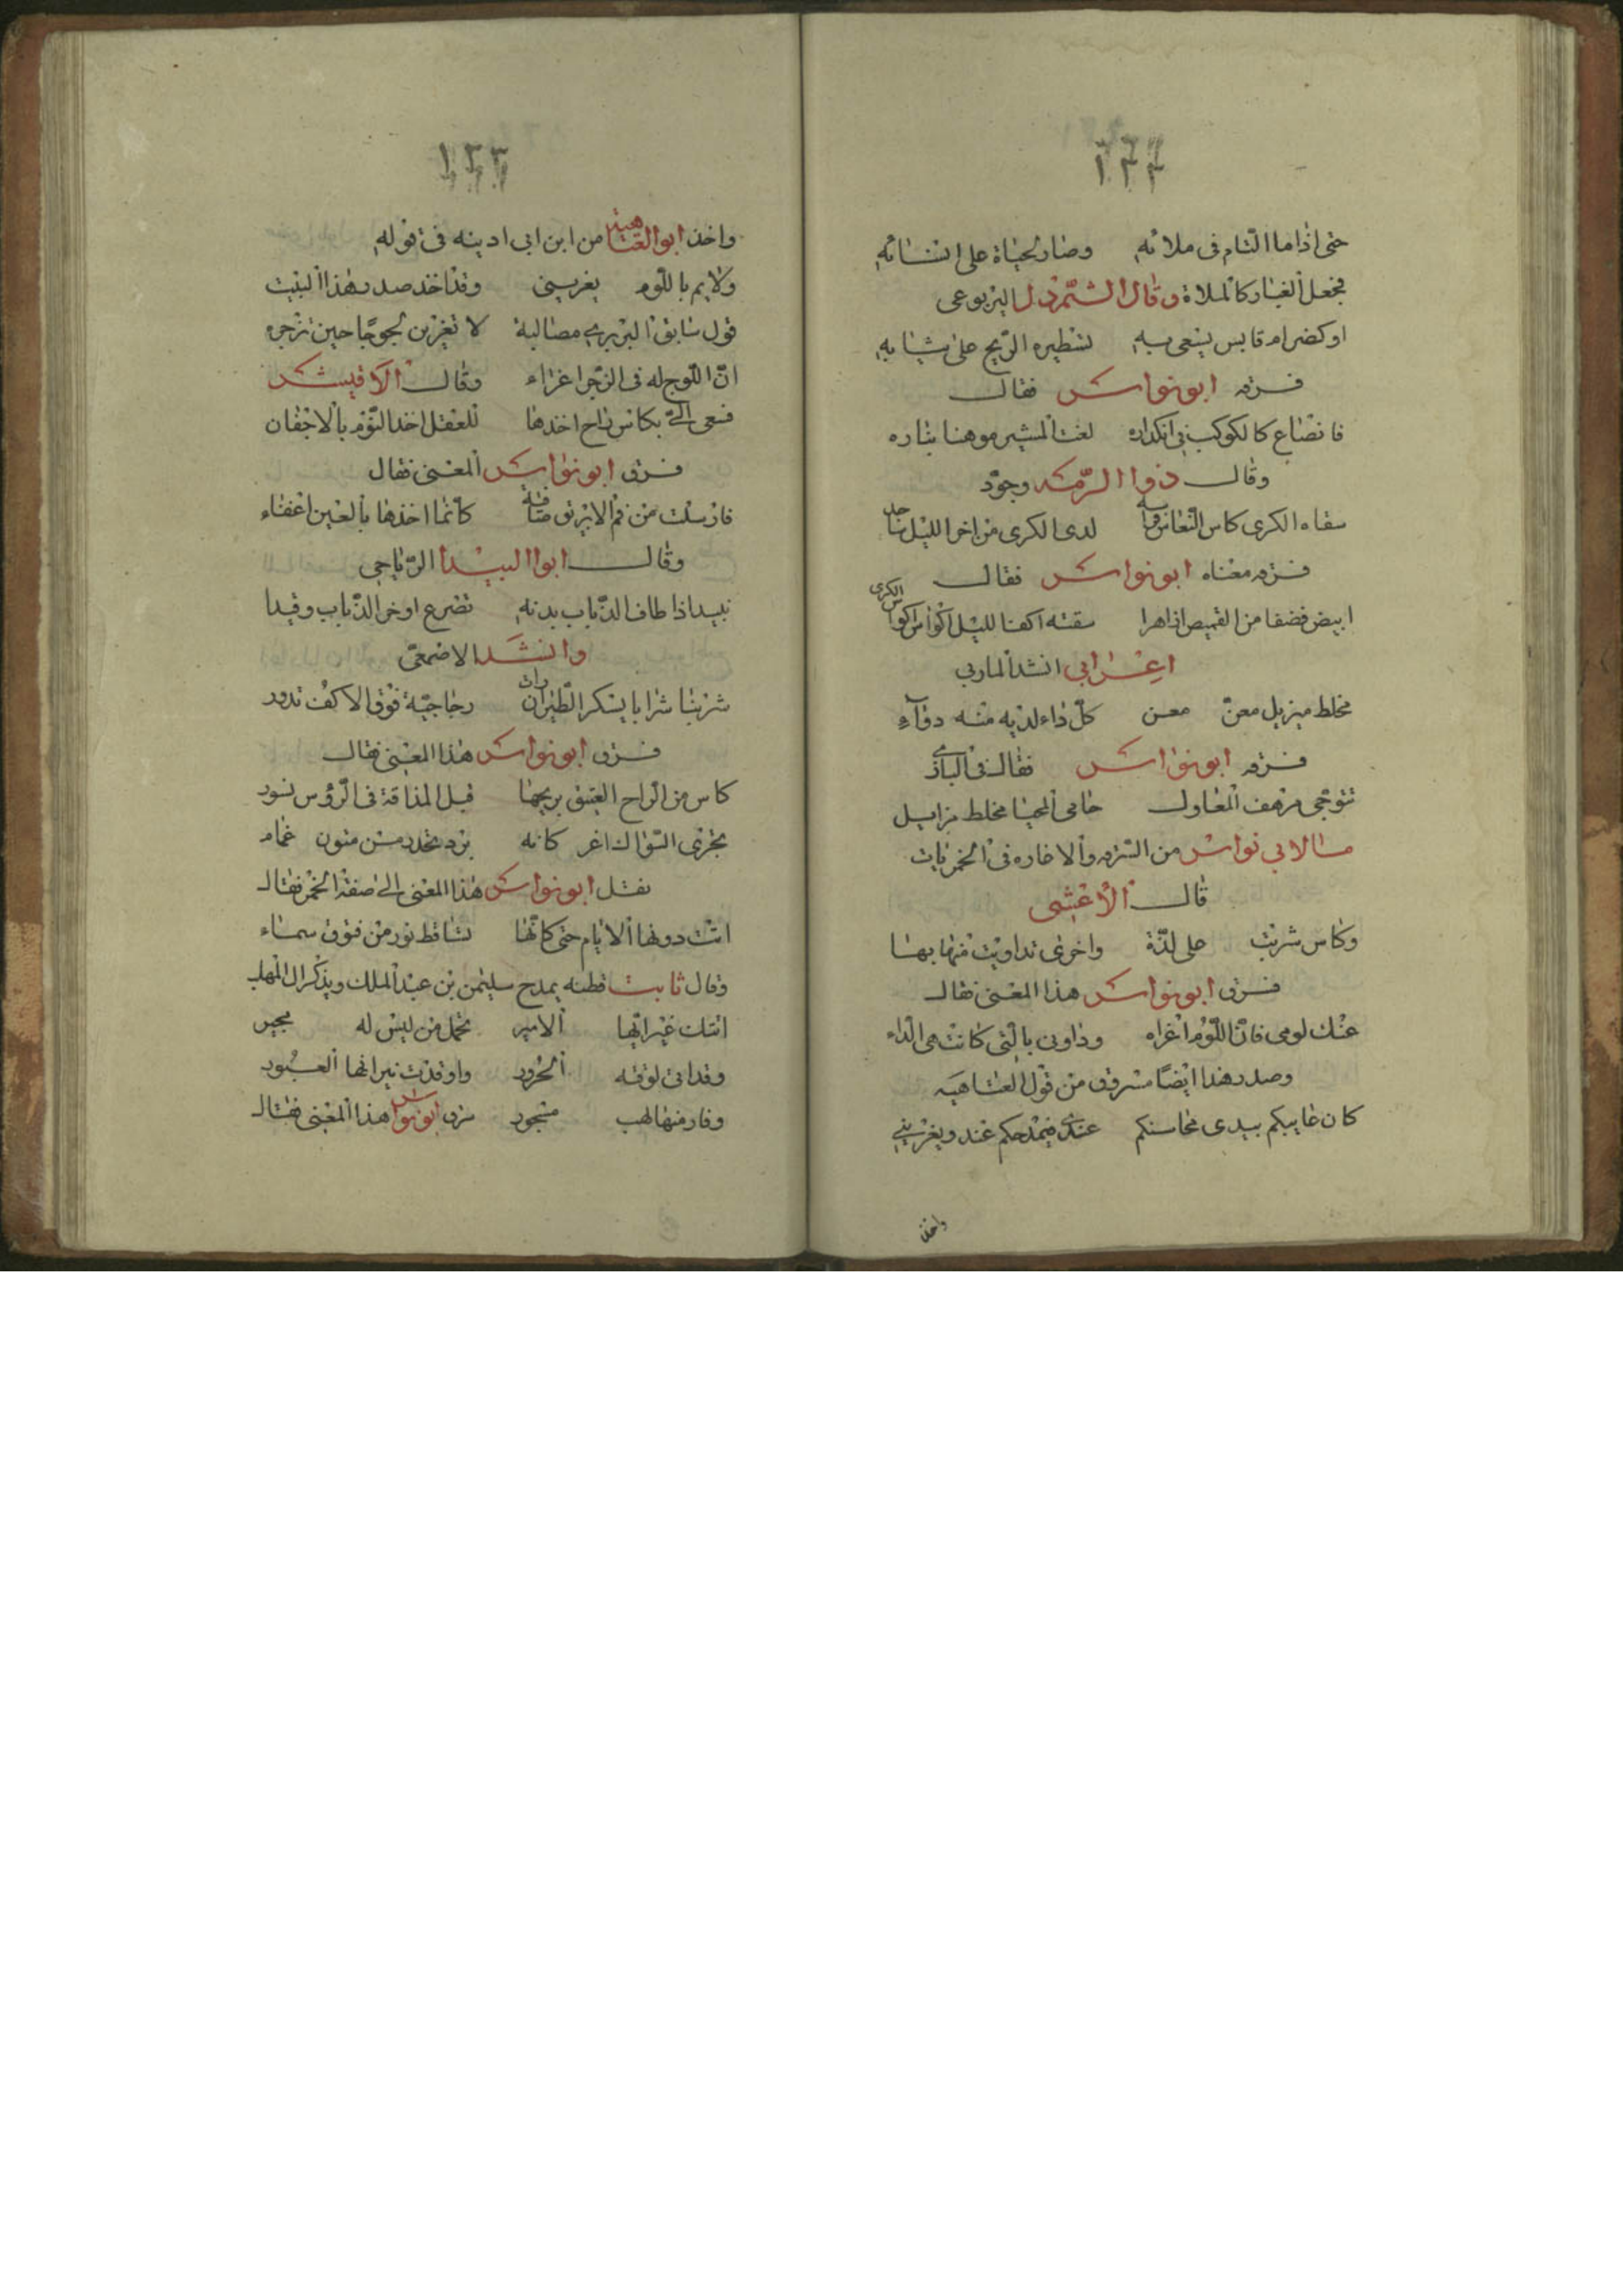 ١٢٢
حتى اذاما التام فى ملائه وصار لحياة على انتشائه
فجعل الغبار كالملاة وقال الشمردل اليربوعى
او كضرام قابس يسعى به تستطيره الريح على ثيابه
فسرقه ابو نواس فقال
فانصاع كالكوكب فى انكداره لفت المشير موهنا بناره
وقال ذوا الرمه وجوّد
سقاه الكرى كاس النعاس لدى الكرى من اخر الليل
فسرقه معناه ابو نواس فقال
ابيض فضفا من القميص سقته اكف الليل اكواس الكرى
اعرابى انشد المازنى
مخلط ميزيل معنّ معن كلّ داء لديه منه دوآء
فسرقه ابو نواس فقال فى البازى
مرهف المعاول حامى المحيا مخلط مزايل
مالابى نواس من السرقه والاخاره فى الخمريات
قال الأعشى
وكاس شربت على لذّة واخرى تداويت منها بها
فسرق ابو نواس هذا المعنى فقال
عنك لومى فانّ اللّوم اغراه وداونى بالّتى كانت هى الدّاء
وصدر هذا ايضًا مسروق من قول العتاهيه
كان عايبكم يبدى محاسنكم عندى فيمدحكم عند ويغرينى
واخذ
١٢٣
واخذ ابو العتاهيه من ابن ابى ادينه فى قوله
ولايم باللّوم يغرينى وقد اخذ صدر هذا البيت
قول سابق البربرى لا تغرين لجوجًا حين تزجره
انّ اللّوج له فى الزّجر اغراء وقال الاقيشر
فسعى الىّ بكاس راح اخذها للعقل اخذ النّوم بالاجفان
فسرق ابو نواس المعنى فقال
فارسلت من فم الابريق صافية كانّما اخذها بالعين اغفاء
وقال ابوا البيدا الرّياحى
نبيد اذا طاف الذّباب بدنه تضرع اوخر الذّباب وقيدا
وانشد الاضمعىّ
شربنا شرابا يسكر الطّير رجاجيّة فوق الاكف تدور
فسرق ابو نواس هذا المعنى فقال
كاس من الراح العتيق بريحها قبل المذاقة فى الرّؤس تسور
اغر كانه برد تحدر من متون غمام
نقل ابو نواس هذا المعنى الى صفة الخمر فقال
اتت دونها الايام حتى كانّها تساقط نور من فتوق سماء
وقال ثابت قطنه يمدح سليمن بن عبد الملك ويذكر ال المهلب
اتتك غير ايّها الامير تحمل من ليس له مجير
وقد اتى لوقته الحرور واوقدت نيرانها العبور
وفار منها لهب مسجور سرق ابو نواس هذا المعنى فقال